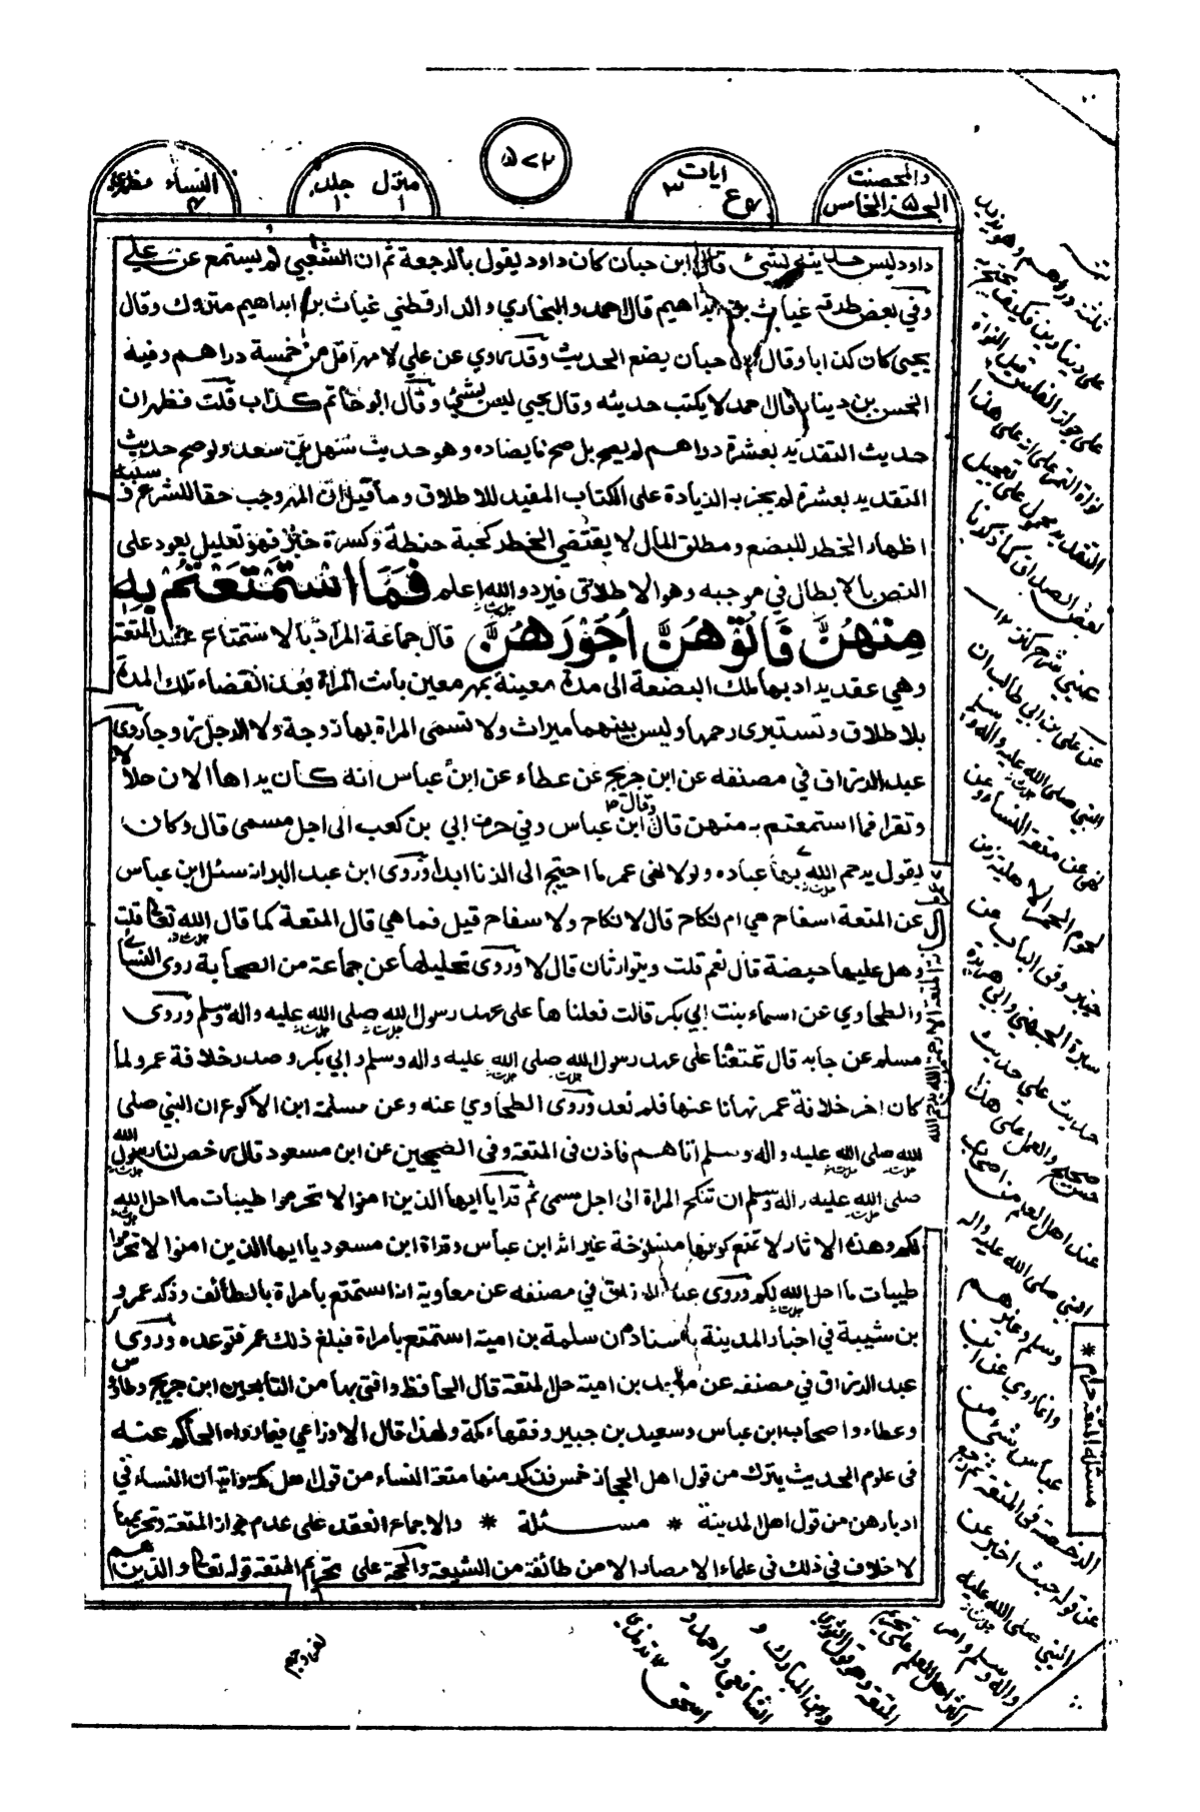 والمحصنت
الجزء الخامس ٥
ايات
ع ٣
٥٧٢
منزل ١ جلد ١
النساء ٤ مظهرى
داود ليس حديثه بشئ قال ابن حبان كان داود يقول بالرجعة ثم ان الشعبي لم يستمع عن علي
وفي بعض طرقه غياث بن ابراهيم قال احمد والبخاري والدارقطني غياث بن ابراهيم متروك وقال
يحيى كان كذابا وقال ابن حبان يضع الحديث وقد روي عن علي لا مهر اقل من خمسة دراهم وفيه
الحسن بن دينار قال احمد لا يكتب حديثه وقال يحيى ليس بشئ وقال ابو حاتم كذاب قلت فظهر ان
حديث التقدير بعشرة دراهم لم يصح بل صح ما يضاده وهو حديث سهل بن سعد ولو صح حديث
التقدير بعشرة لم يجز به الزيادة على الكتاب المفيد للاطلاق وما قيل ان المهر وجب حقا للشرع
اظهار الخطر للبضع ومطلق المال لا يقتضي الخطر كحبة حنطة وكسرة خبز فهو تعليل يعود على
النص بالابطال في موجبه وهو الاطلاق فيرد والله اعلم فَمَا اسْتَمْتَعْتُمْ بِهِ
مِنْهُنَّ فَاٰتُوْهُنَّ اُجُوْرَهُنَّ قال جماعة المراد بالاستمتاع عقد المتعة
وهي عقد يراد بها ملك البضعة الى مدة معينة بمهر معين بانت المراة بعد انقضاء تلك المدة
بلا طلاق وتستبرى رحمها وليس بينهما ميراث ولا تسمى المراة بها زوجة ولا الرجل زوجا روى
عبد الرزاق في مصنفه عن ابن جريج عن عطاء عن ابن عباس انه كان يراها الان حلالا
وتقرا فما استمتعتم به منهن قال ابن عباس وفي حرف ابي بن كعب الى اجل مسمى قال وكان
يقول يرحم الله عمر ما كانت المتعة الا رحمة من الله رحم بها عباده ولولا نهى عمر ما احتيج الى الزنا ابدا وروى ابن عبد البر انه سئل ابن عباس
عن المتعة اسفاح هي ام نكاح قال لا نكاح ولا سفاح قيل فما هي قال المتعة كما قال الله تعالى قلت
وهل عليها حيضة قال نعم قلت ويتوارثان قال لا وروى تحليلها عن جماعة من الصحابة روى النسائي
والطحاوي عن اسماء بنت ابي بكر قالت فعلناها على عهد رسول الله صلى الله عليه واله وسلم وروى
مسلم عن جابر قال تمتعنا على عهد رسول الله صلى الله عليه واله وسلم وابي بكر وصدر خلافة عمر ولما
كان اخر خلافة عمر نهانا عنها فلم نعد وروى الطحاوي عنه وعن مسلمة ابن الاكوع ان النبي صلى
الله صلى الله عليه واله وسلم اتاهم فاذن في المتعة وفي الصحيحين عن ابن مسعود قال رخص لنا رسول الله
صلى الله عليه واله وسلم ان تنكح المراة الى اجل مسمى ثم قرا يا ايها الذين امنوا لا تحرموا طيبات ما احل الله
لكم وهذه الاثار لا تمنع كونها منسوخة غير اثر ابن عباس وقراة ابن مسعود يا ايها الذين امنوا لا تحرموا
طيبات ما احل الله لكم وروى عبد الرزاق في مصنفه عن معاوية انه استمتع بامراة بالطائف وذكر عمر و
بن شيبة في اخبار المدينة باسناده ان سلمة بن امية استمتع بامراة فبلغ ذلك عمر فتوعده وروى
عبد الرزاق في مصنفه عن معبد بن امية حل المتعة قال الحافظ وافتى بها من التابعين ابن جريج وطاؤس
وعطاء واصحاب ابن عباس وسعيد بن جبير وفقهاء مكة ولهذا قال الاوزاعي فيما رواه الحاكم عنه
فى علوم الحديث يترك من قول اهل الحجاز خمس فذكر منها متعة النساء من قول اهل مكة واتيان النساء في
ادبارهن من قول اهل المدينة * مسئلة * والاجماع انعقد على عدم جواز المتعة وتحريمها
لا خلاف في ذلك في علماء الامصار الا من طائفة من الشيعة والحجة على تحريم المتعة قوله تعالى والذين هم
لفروجهم
مسئلة المتعة حرام *
ثلثة دراهم وهو يزيد
على دينارين فكيف يحتج به
على جواز الفلس قيل النواة
نواة التمر على انه على هذا
التقدير يحمل على تعجيل
بعض الصداق كما ذكرنا
عيني شرح كنز ١٢
عن علي بن ابي طالب ان
النبي صلى الله عليه واله وسلم
نهى عن متعة النساء وعن
لحوم الحمر الاهلية زمن
خيبر وفى الباب عن
سبرة الجهني وابي هريرة
حديث علي حديث
حسن صحيح والعمل على هذا
عند اهل العلم من اصحاب
النبي صلى الله عليه واله
وسلم وغيرهم
وانما روي عن ابن
عباس شئ من
الرخصة فى المتعة ثم رجع
عن قوله حيث اخبر عن
النبي صلى الله عليه
واله وسلم وامر
اكثر اهل العلم على تحريم
المتعة وهو قول الثوري
وابن المبارك و
الشافعي واحمد و
اسحق ١٢ ترمذي